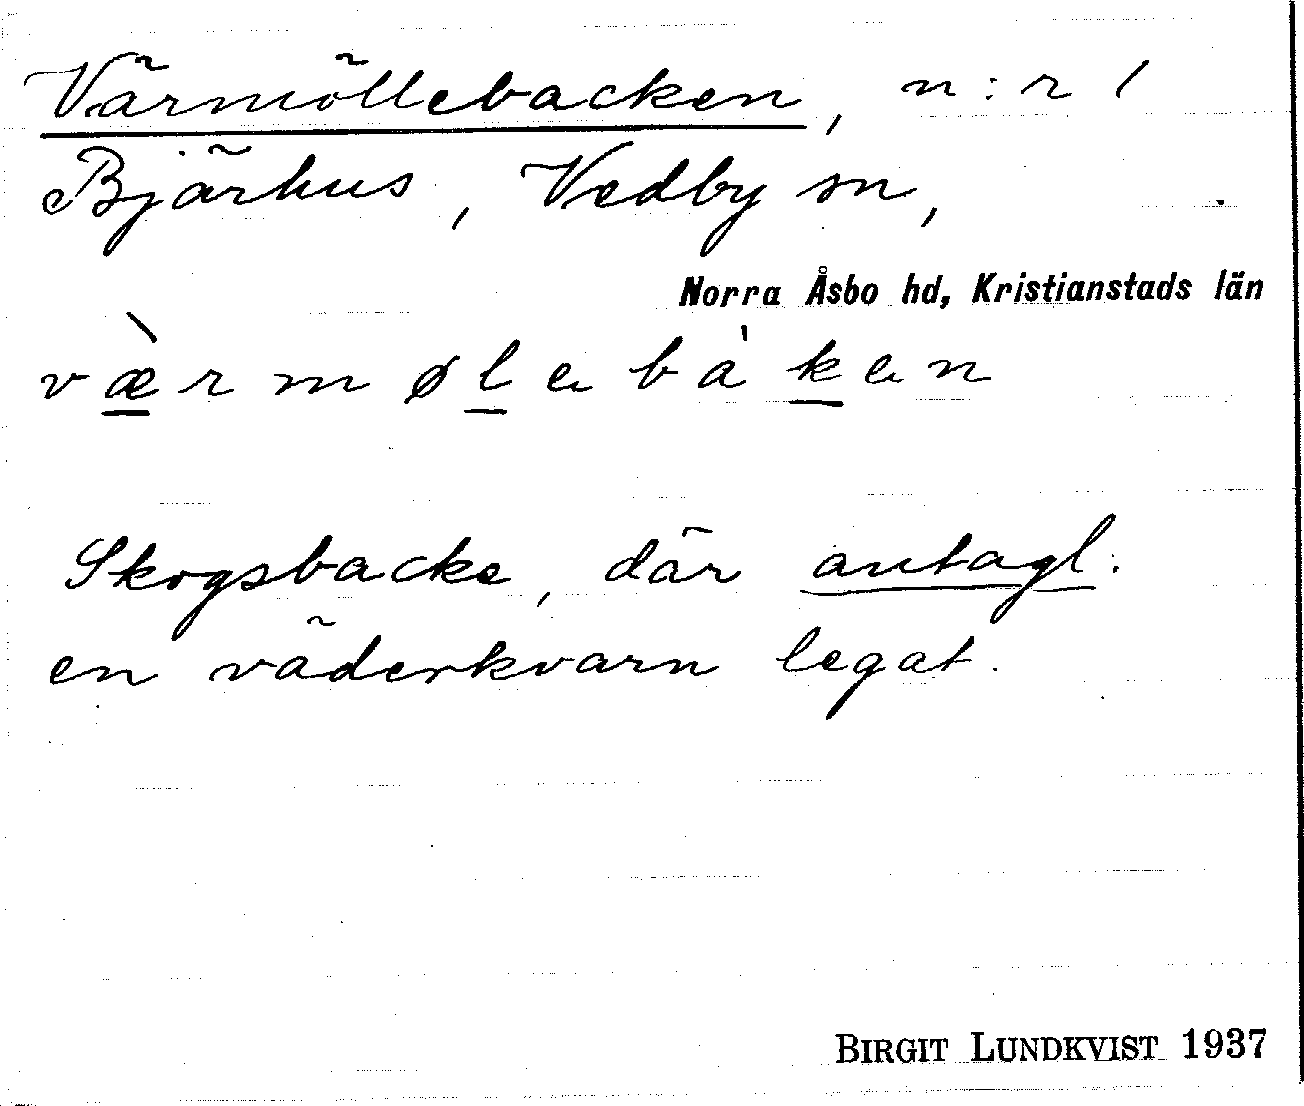 Värmöllebacken, n:r 1
Bjärhus, Vedby sn,
Norra Åsbo hd, Kristianstads län
væ̀rmølebàken
Skogsbacke, där antagl.
en väderkvarn legat.
BIRGIT LUNDKVIST 1937